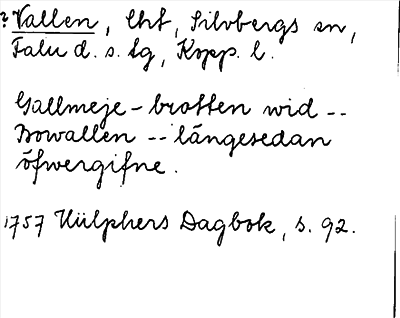 ? Vallen, Cht, Silvbergs sn,
Falu d. s. tg, Kopp. l.
Gallmeje-brotten wid --
Bowallen -- längesedan
öfwergifne.
1757 Hülphers Dagbok, s. 92.